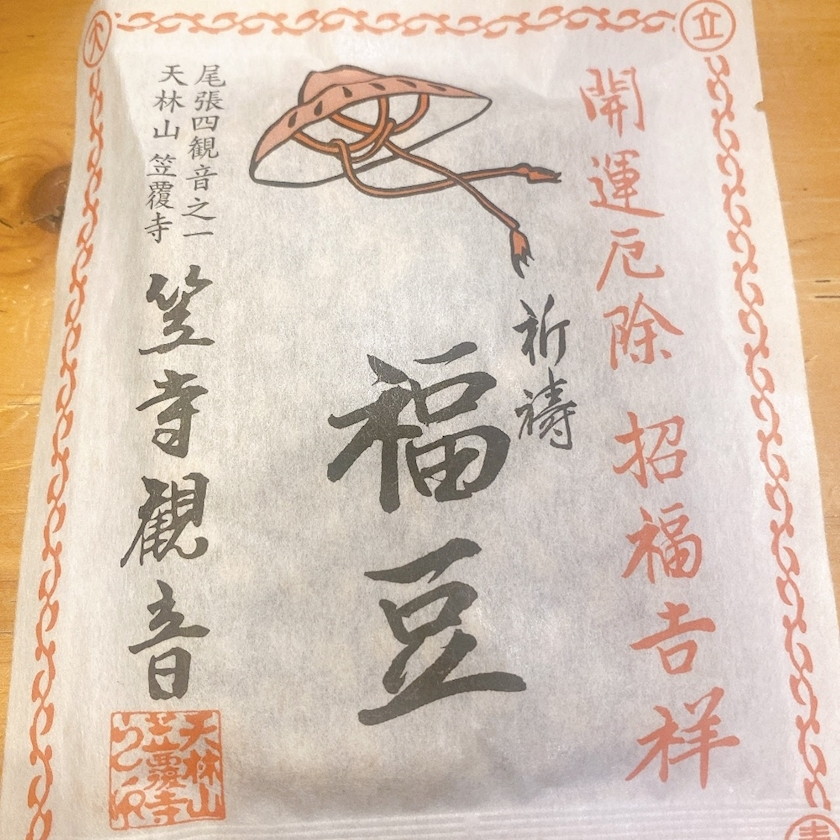 立
開運厄除 招福吉祥
祈祷
福豆
尾張四観音之一
天林山 笠覆寺
笠寺観音
天林山
笠覆寺